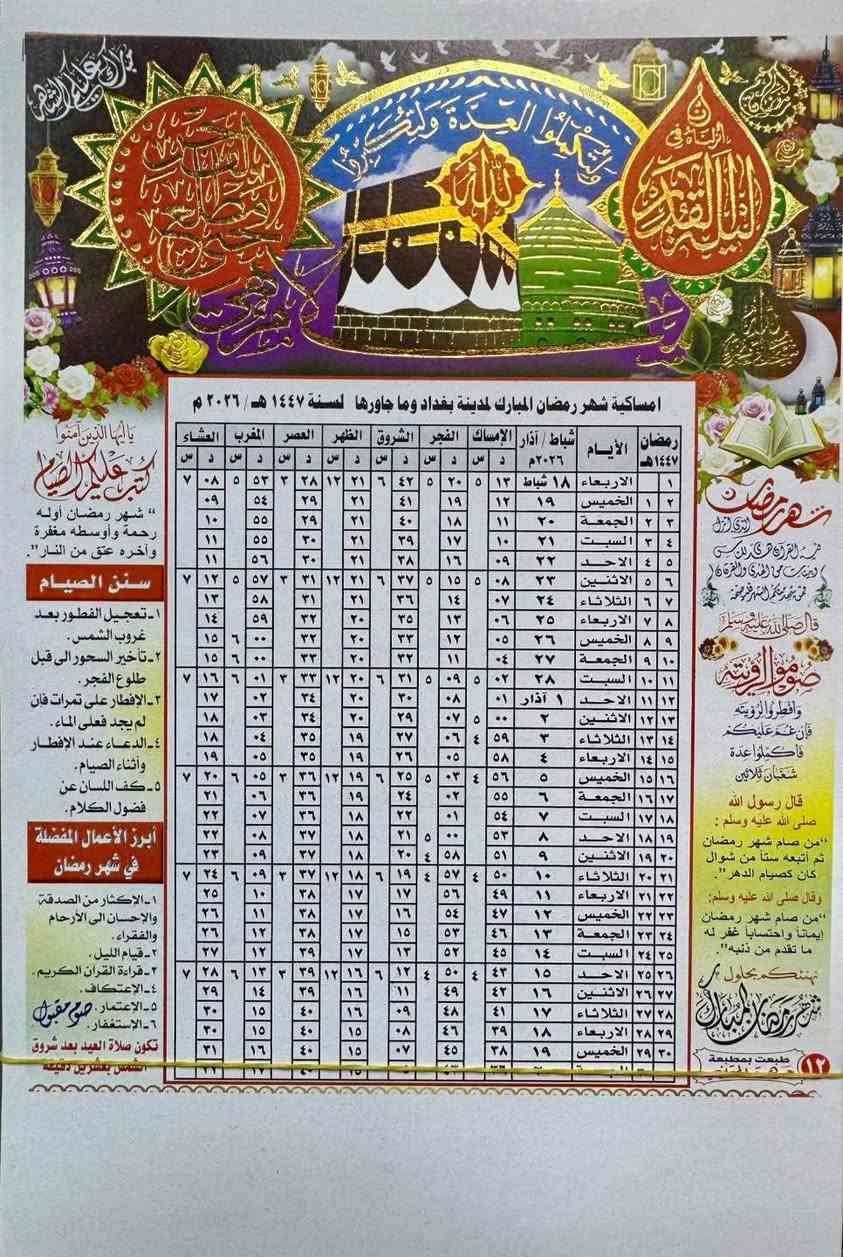 مبارك عليكم الشهر
ولتكملوا العدة ولتكبروا
الله
انا انزلناه في
ليلة القدر
امساكية شهر رمضان المبارك لمدينة بغداد وما جاورها لسنة ١٤٤٧ هـ / ٢٠٢٦ م
رمضان ١٤٤٧هـ الأيام شباط / آذار ٢٠٢٦م الإمساك الفجر الشروق الظهر العصر المغرب العشاء
د س د س د س د س د س د س د س
١ الاربعاء ١٨ شباط ١٣ ٥ ٢٠ ٥ ٤٢ ٦ ٢١ ١٢ ٢٨ ٣ ٥٣ ٥ ٠٨ ٧
٢ ١ الخميس ١٩ ١٢ ١٩ ٤١ ٢١ ٢٩ ٥٤ ٠٩
٣ ٢ الجمعة ٢٠ ١١ ١٨ ٤٠ ٢١ ٢٩ ٥٥ ١٠
٤ ٣ السبت ٢١ ١٠ ١٧ ٣٩ ٢١ ٣٠ ٥٥ ١١
٥ ٤ الاحد ٢٢ ٠٩ ١٦ ٣٨ ٢١ ٣٠ ٥٦ ١١
٦ ٥ الاثنين ٢٣ ٠٨ ٥ ١٥ ٥ ٣٧ ٦ ٢١ ١٢ ٣١ ٣ ٥٧ ٥ ١٢ ٧
٧ ٦ الثلاثاء ٢٤ ٠٧ ١٤ ٣٦ ٢١ ٣١ ٥٨ ١٣
٨ ٧ الاربعاء ٢٥ ٠٦ ١٣ ٣٥ ٢٠ ٣٢ ٥٩ ١٤
٩ ٨ الخميس ٢٦ ٠٥ ١٢ ٣٣ ٢٠ ٣٢ ٠٠ ٦ ١٥
١٠ ٩ الجمعة ٢٧ ٠٤ ١١ ٣٢ ٢٠ ٣٣ ٠٠ ٦ ١٥
١١ ١٠ السبت ٢٨ ٠٢ ٥ ٠٩ ٥ ٣١ ٦ ٢٠ ١٢ ٣٣ ٣ ٠١ ٦ ١٦ ٧
١٢ ١١ الاحد ١ آذار ٠١ ٠٨ ٣٠ ٢٠ ٣٤ ٠٢ ١٧
١٣ ١٢ الاثنين ٢ ٠٠ ٥ ٠٧ ٢٩ ٢٠ ٣٤ ٠٣ ١٨
١٤ ١٣ الثلاثاء ٣ ٥٩ ٤ ٠٦ ٢٧ ١٩ ٣٥ ٠٤ ١٨
١٥ ١٤ الاربعاء ٤ ٥٨ ٠٥ ٢٦ ١٩ ٣٥ ٠٥ ١٩
١٦ ١٥ الخميس ٥ ٥٦ ٤ ٠٣ ٥ ٢٥ ٦ ١٩ ١٢ ٣٦ ٣ ٠٥ ٦ ٢٠ ٧
١٧ ١٦ الجمعة ٦ ٥٥ ٠٢ ٢٤ ١٩ ٣٦ ٠٦ ٢١
١٨ ١٧ السبت ٧ ٥٤ ٠١ ٢٢ ١٨ ٣٦ ٠٧ ٢٢
١٩ ١٨ الاحد ٨ ٥٣ ٠٠ ٥ ٢١ ١٨ ٣٧ ٠٨ ٢٢
٢٠ ١٩ الاثنين ٩ ٥١ ٥٨ ٤ ٢٠ ١٨ ٣٧ ٠٩ ٢٣
٢١ ٢٠ الثلاثاء ١٠ ٥٠ ٤ ٥٧ ٤ ١٩ ٦ ١٨ ١٢ ٣٧ ٣ ٠٩ ٦ ٢٤ ٧
٢٢ ٢١ الاربعاء ١١ ٤٩ ٥٦ ١٧ ١٧ ٣٨ ١٠ ٢٥
٢٣ ٢٢ الخميس ١٢ ٤٧ ٥٤ ١٦ ١٧ ٣٨ ١١ ٢٦
٢٤ ٢٣ الجمعة ١٣ ٤٦ ٥٣ ١٥ ١٧ ٣٨ ١٢ ٢٦
٢٥ ٢٤ السبت ١٤ ٤٥ ٥٢ ١٣ ١٧ ٣٩ ١٢ ٢٧
٢٦ ٢٥ الاحد ١٥ ٤٣ ٤ ٥٠ ٤ ١٢ ٦ ١٦ ١٢ ٣٩ ٣ ١٣ ٦ ٢٨ ٧
٢٧ ٢٦ الاثنين ١٦ ٤٢ ٤٩ ١١ ١٦ ٣٩ ١٤ ٢٩
٢٨ ٢٧ الثلاثاء ١٧ ٤١ ٤٨ ٠٩ ١٦ ٤٠ ١٥ ٣٠
٢٩ ٢٨ الاربعاء ١٨ ٣٩ ٤٦ ٠٨ ١٦ ٤٠ ١٥ ٣٠
٣٠ ٢٩ الخميس ١٩ ٣٨ ٤٥ ٠٧ ١٥ ٤٠ ١٦ ٣١
شهر رمضان
الذي انزل
فيه القرآن هدى للناس
وبينات من الهدى والفرقان
فمن شهد منكم الشهر فليصمه
قال صلى الله عليه وسلم
صوموا لرؤيته
وأفطروا لرؤيته
فإن غم عليكم
فاكملوا عدة
شعبان ثلاثين
قال رسول الله
صلى الله عليه وسلم :
"من صام شهر رمضان
ثم أتبعه ستاً من شوال
كان كصيام الدهر"
وقال صلى الله عليه وسلم:
"من صام شهر رمضان
إيماناً واحتساباً غفر له
ما تقدم من ذنبه".
نهنئكم بحلول
شهر رمضان المبارك
طبعت بمطبعة
١٢
يا أيها الذين آمنوا
كتب عليكم الصيام
" شهر رمضان أوله
رحمة وأوسطه مغفرة
وآخره عتق من النار".
سنن الصيام
١ـ تعجيل الفطور بعد
غروب الشمس.
٢ـ تأخير السحور الى قبل
طلوع الفجر.
٣ـ الإفطار على تمرات فإن
لم يجد فعلى الماء.
٤ـ الدعاء عند الإفطار
وأثناء الصيام.
٥ـ كف اللسان عن
فضول الكلام.
أبرز الأعمال المفضلة
في شهر رمضان
١ـ الإكثار من الصدقة
والإحسان الى الأرحام
والفقراء.
٢ـ قيام الليل.
٣ـ قراءة القرآن الكريم.
٤ـ الإعتكاف.
٥ـ الإعتمار.
٦ـ الإستغفار.
صوم مقبول
تكون صلاة العيد بعد شروق
الشمس بعشرين دقيقة